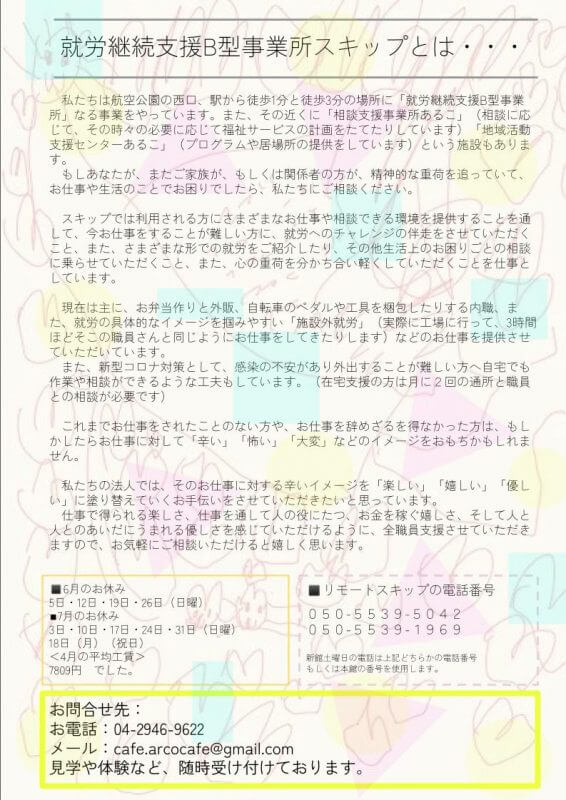 就労継続支援B型事業所スキップとは・・・
私たちは航空公園の西口、駅から徒歩1分と徒歩3分の場所に「就労継続支援B型事業
所」なる事業をやっています。また、その近くに「相談支援事業所あるこ」（相談に応
じて、その時々の必要に応じて福祉サービスの計画をたてたりしています）「地域活動
支援センターあるこ」（プログラムや居場所の提供をしています）という施設もありま
す。
もしあなたが、またご家族が、もしくは関係者の方が、精神的な重荷を追っていて、
お仕事や生活のことでお困りでしたら、私たちにご相談ください。
スキップでは利用される方にさまざまなお仕事や相談できる環境を提供することを通
して、今お仕事をすることが難しい方に、就労へのチャレンジの伴走をさせていただく
こと、また、さまざまな形での就労をご紹介したり、その他生活上のお困りごとの相談
に乗らせていただくこと、また、心の重荷を分かち合い軽くしていただくことを仕事と
しています。
現在は主に、お弁当作りと外販、自転車のペダルや工具を梱包したりする内職、ま
た、就労の具体的なイメージを掴みやすい「施設外就労」（実際に工場に行って、3時間
ほどそこの職員さんと同じようにお仕事をしてきたりします）などのお仕事を提供させ
ていただいています。
また、新型コロナ対策として、感染の不安があり外出することが難しい方へ自宅でも
作業や相談ができるような工夫もしています。（在宅支援の方は月に２回の通所と職員
との相談が必要です）
これまでお仕事をされたことのない方や、お仕事を辞めざるを得なかった方は、もし
かしたらお仕事に対して「辛い」「怖い」「大変」などのイメージをおもちかもしれま
せん。
私たちの法人では、そのお仕事に対する辛いイメージを「楽しい」「嬉しい」「優し
い」に塗り替えていくお手伝いをさせていただきたいと思っています。
仕事で得られる楽しさ、仕事を通して人の役にたつ、お金を稼ぐ嬉しさ、そして人と
人とのあいだにうまれる優しさを感じていただけるように、全職員支援させていただき
ますので、お気軽にご相談いただけると嬉しく思います。
■6月のお休み
5日・12日・19日・26日（日曜）
■7月のお休み
3日・10日・17日・24日・31日（日曜）
18日（月）（祝日）
＜4月の平均工賃＞
7809円　でした。
■リモートスキップの電話番号
０５０-５５３９-５０４２
０５０-５５３９-１９６９
新館土曜日の電話は上記どちらかの電話番号
もしくは本館の番号を使用します。
お問合せ先：
お電話：04-2946-9622
メール：cafe.arcocafe@gmail.com
見学や体験など、随時受け付けております。